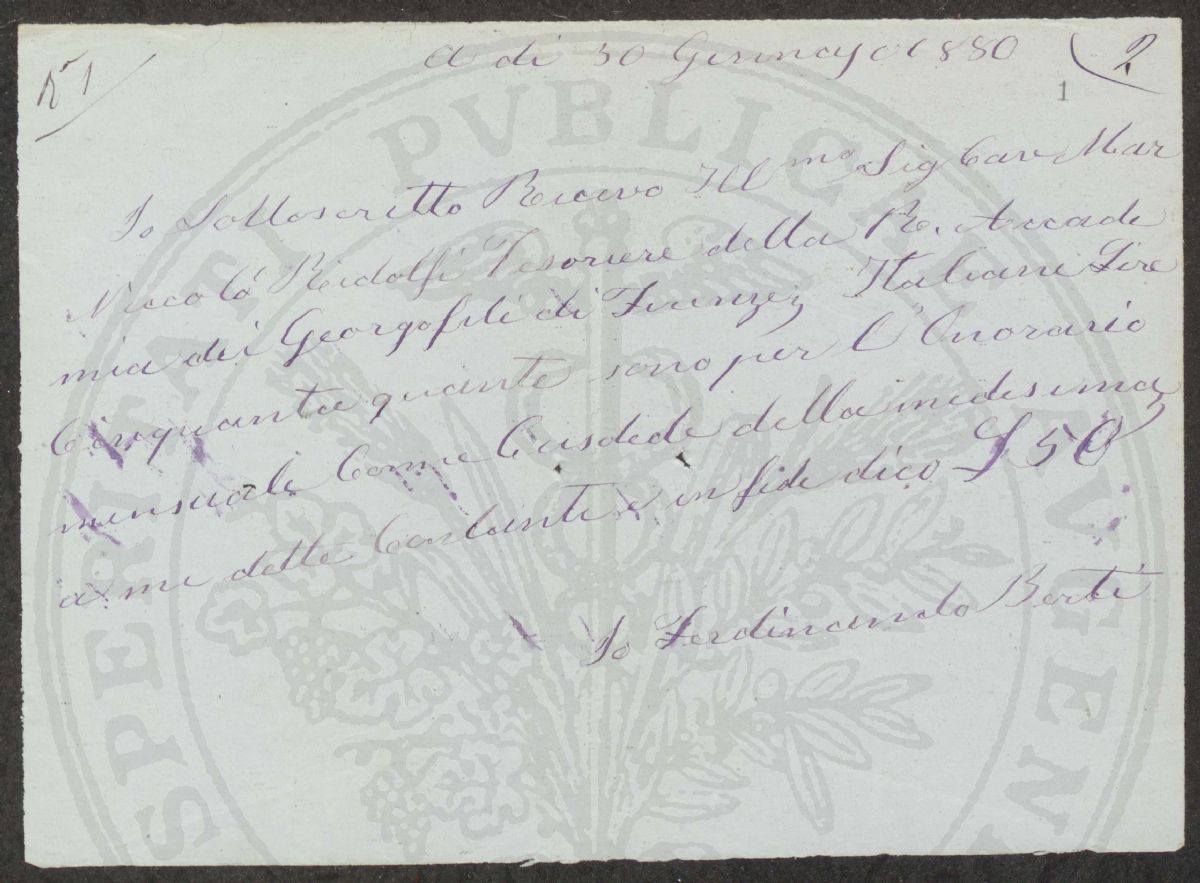 N° 1
A di 30 Gennajo 1880
2.
1
Io Sottoscritto Ricevo Ill mo Sig Cav Mar
Niccoló Ridolfi Tesoriere della R. Accade
mia dei Georgofili di Firenze Italiane Lire
Cinquanta quante sono per l'Onorario
mensuale Come Cusdode della medesima
a me dette Contanti e in fede dico £ 50
Io Ferdinando Berti
PVBLICAE
PROSPERITATI
AVGEN